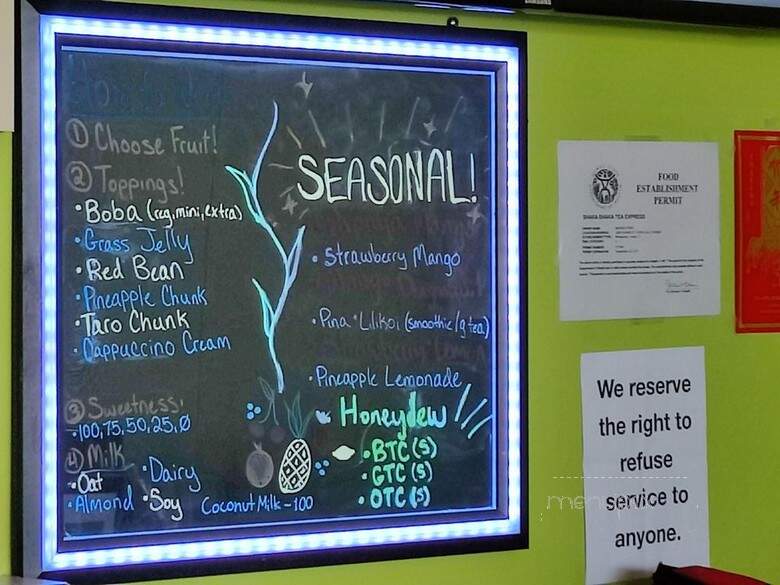 ① Choose Fruit!
② Toppings!
• Boba (reg, mini, extra)
• Grass Jelly
• Red Bean
• Pineapple Chunk
• Taro Chunk
• Cappuccino Cream
③ Sweetness:
• 100, 75, 50, 25, 0
④ Milk
• Oat • Dairy
• Almond • Soy
Coconut Milk - 100
SEASONAL!
• Strawberry Mango
• Pina • Lilikoi (smoothie/g tea)
• Pineapple Lemonade
Honeydew
• BTC (s)
• GTC (s)
• OTC (s)
FOOD
ESTABLISHMENT
PERMIT
SHAKA SHAKA TEA EXPRESS
We reserve
the right to
refuse
service to
anyone.